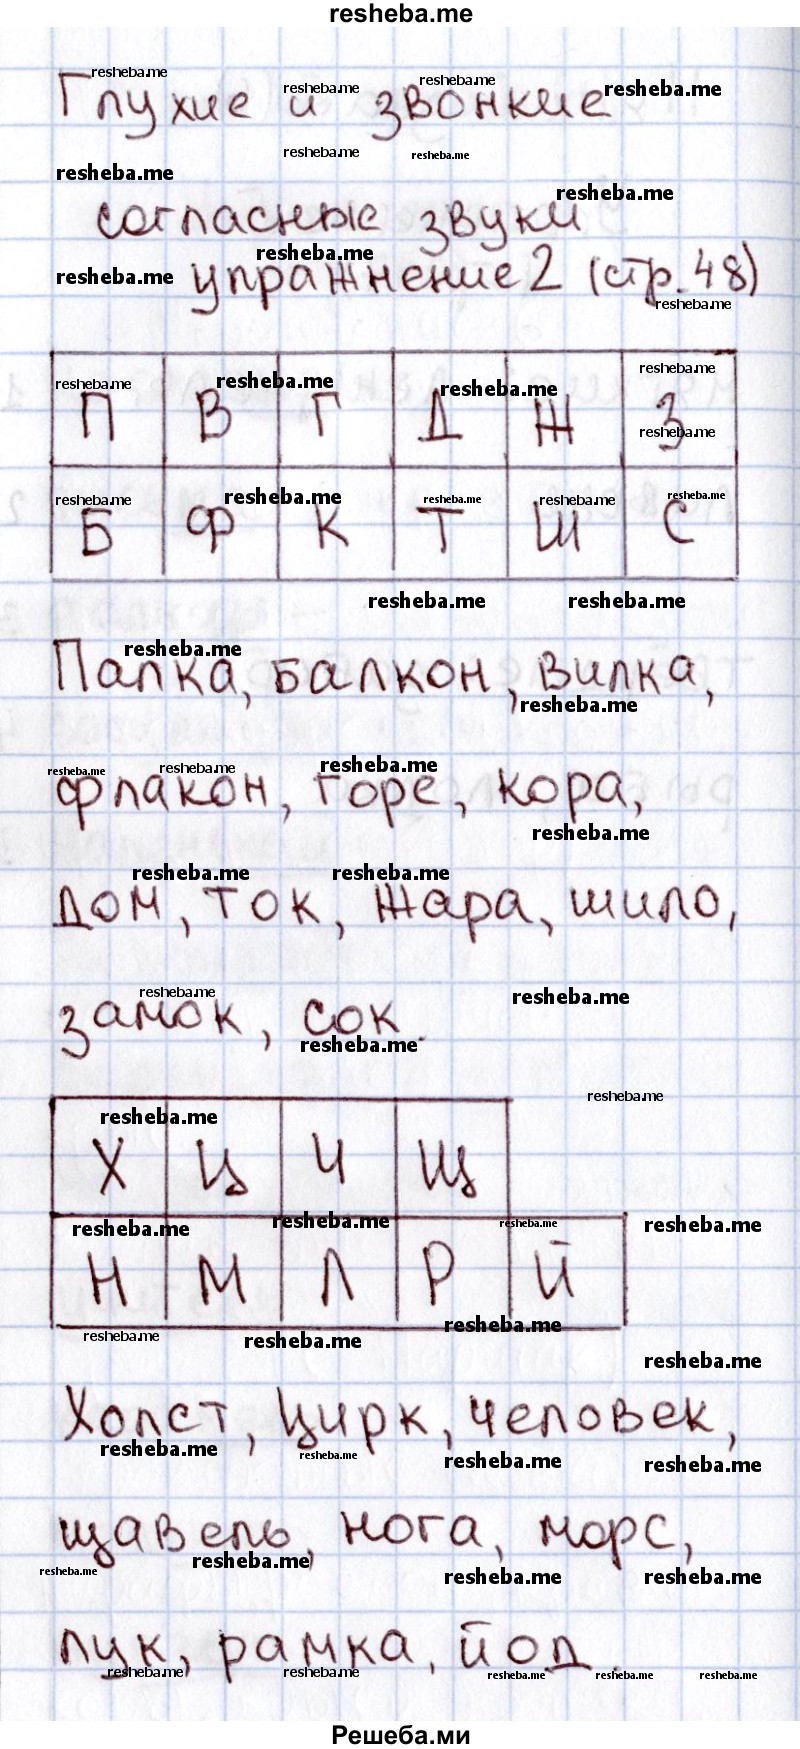 resheba.me
Глухие и звонкие
согласные звуки
упражнение 2 (стр. 48)
П В Г Д Ж З
Б Ф К Т Ш С
Палка, балкон, вилка,
флакон, горе, кора,
дом, ток, жара, шило,
замок, сок.
Х Ц Ч Щ
Н М Л Р Й
Холст, цирк, человек,
щавель, нога, морс,
лук, рамка, йод.
Решеба.ми